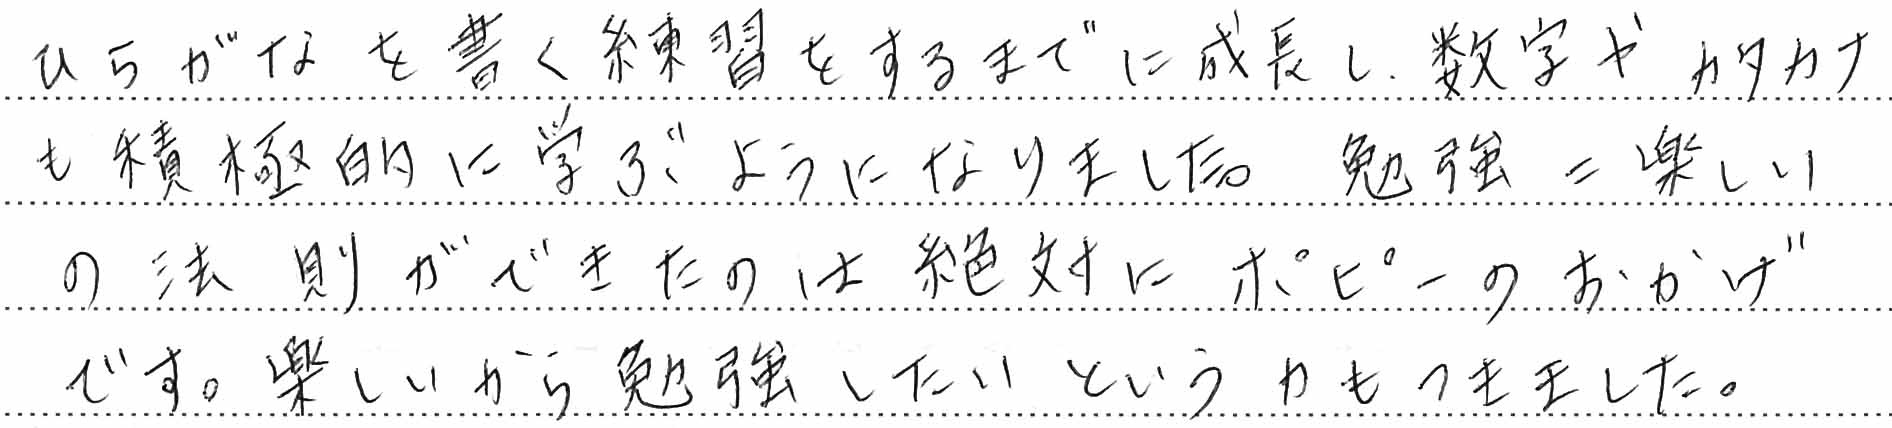 ひらがなを書く練習をするまでに成長し、数字やカタカナ
も積極的に学ぶようになりました。勉強=楽しい
の法則ができたのは絶対にポピーのおかげ
です。楽しいから勉強したいという力もつきました。